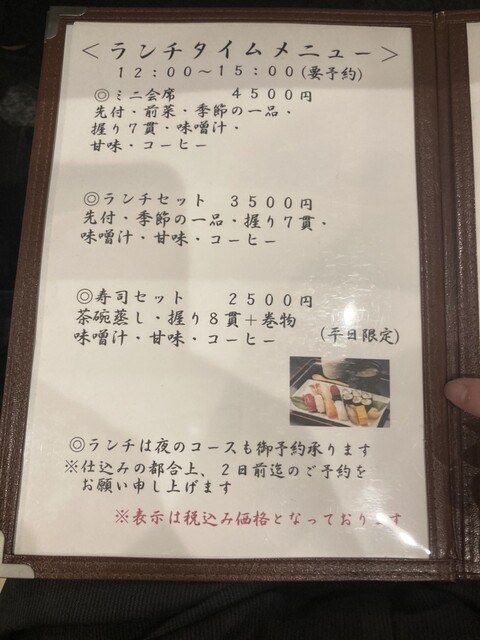 ＜ランチタイムメニュー＞
１２：００～１５：００(要予約)
◎ミニ会席　４５００円
先付・前菜・季節の一品・
握り７貫・味噌汁・
甘味・コーヒー
◎ランチセット　３５００円
先付・季節の一品・握り７貫・
味噌汁・甘味・コーヒー
◎寿司セット　２５００円
茶碗蒸し・握り８貫＋巻物
味噌汁・甘味・コーヒー　(平日限定)
◎ランチは夜のコースも御予約承ります
※仕込みの都合上、２日前迄のご予約を
お願い申し上げます
※表示は税込み価格となっております